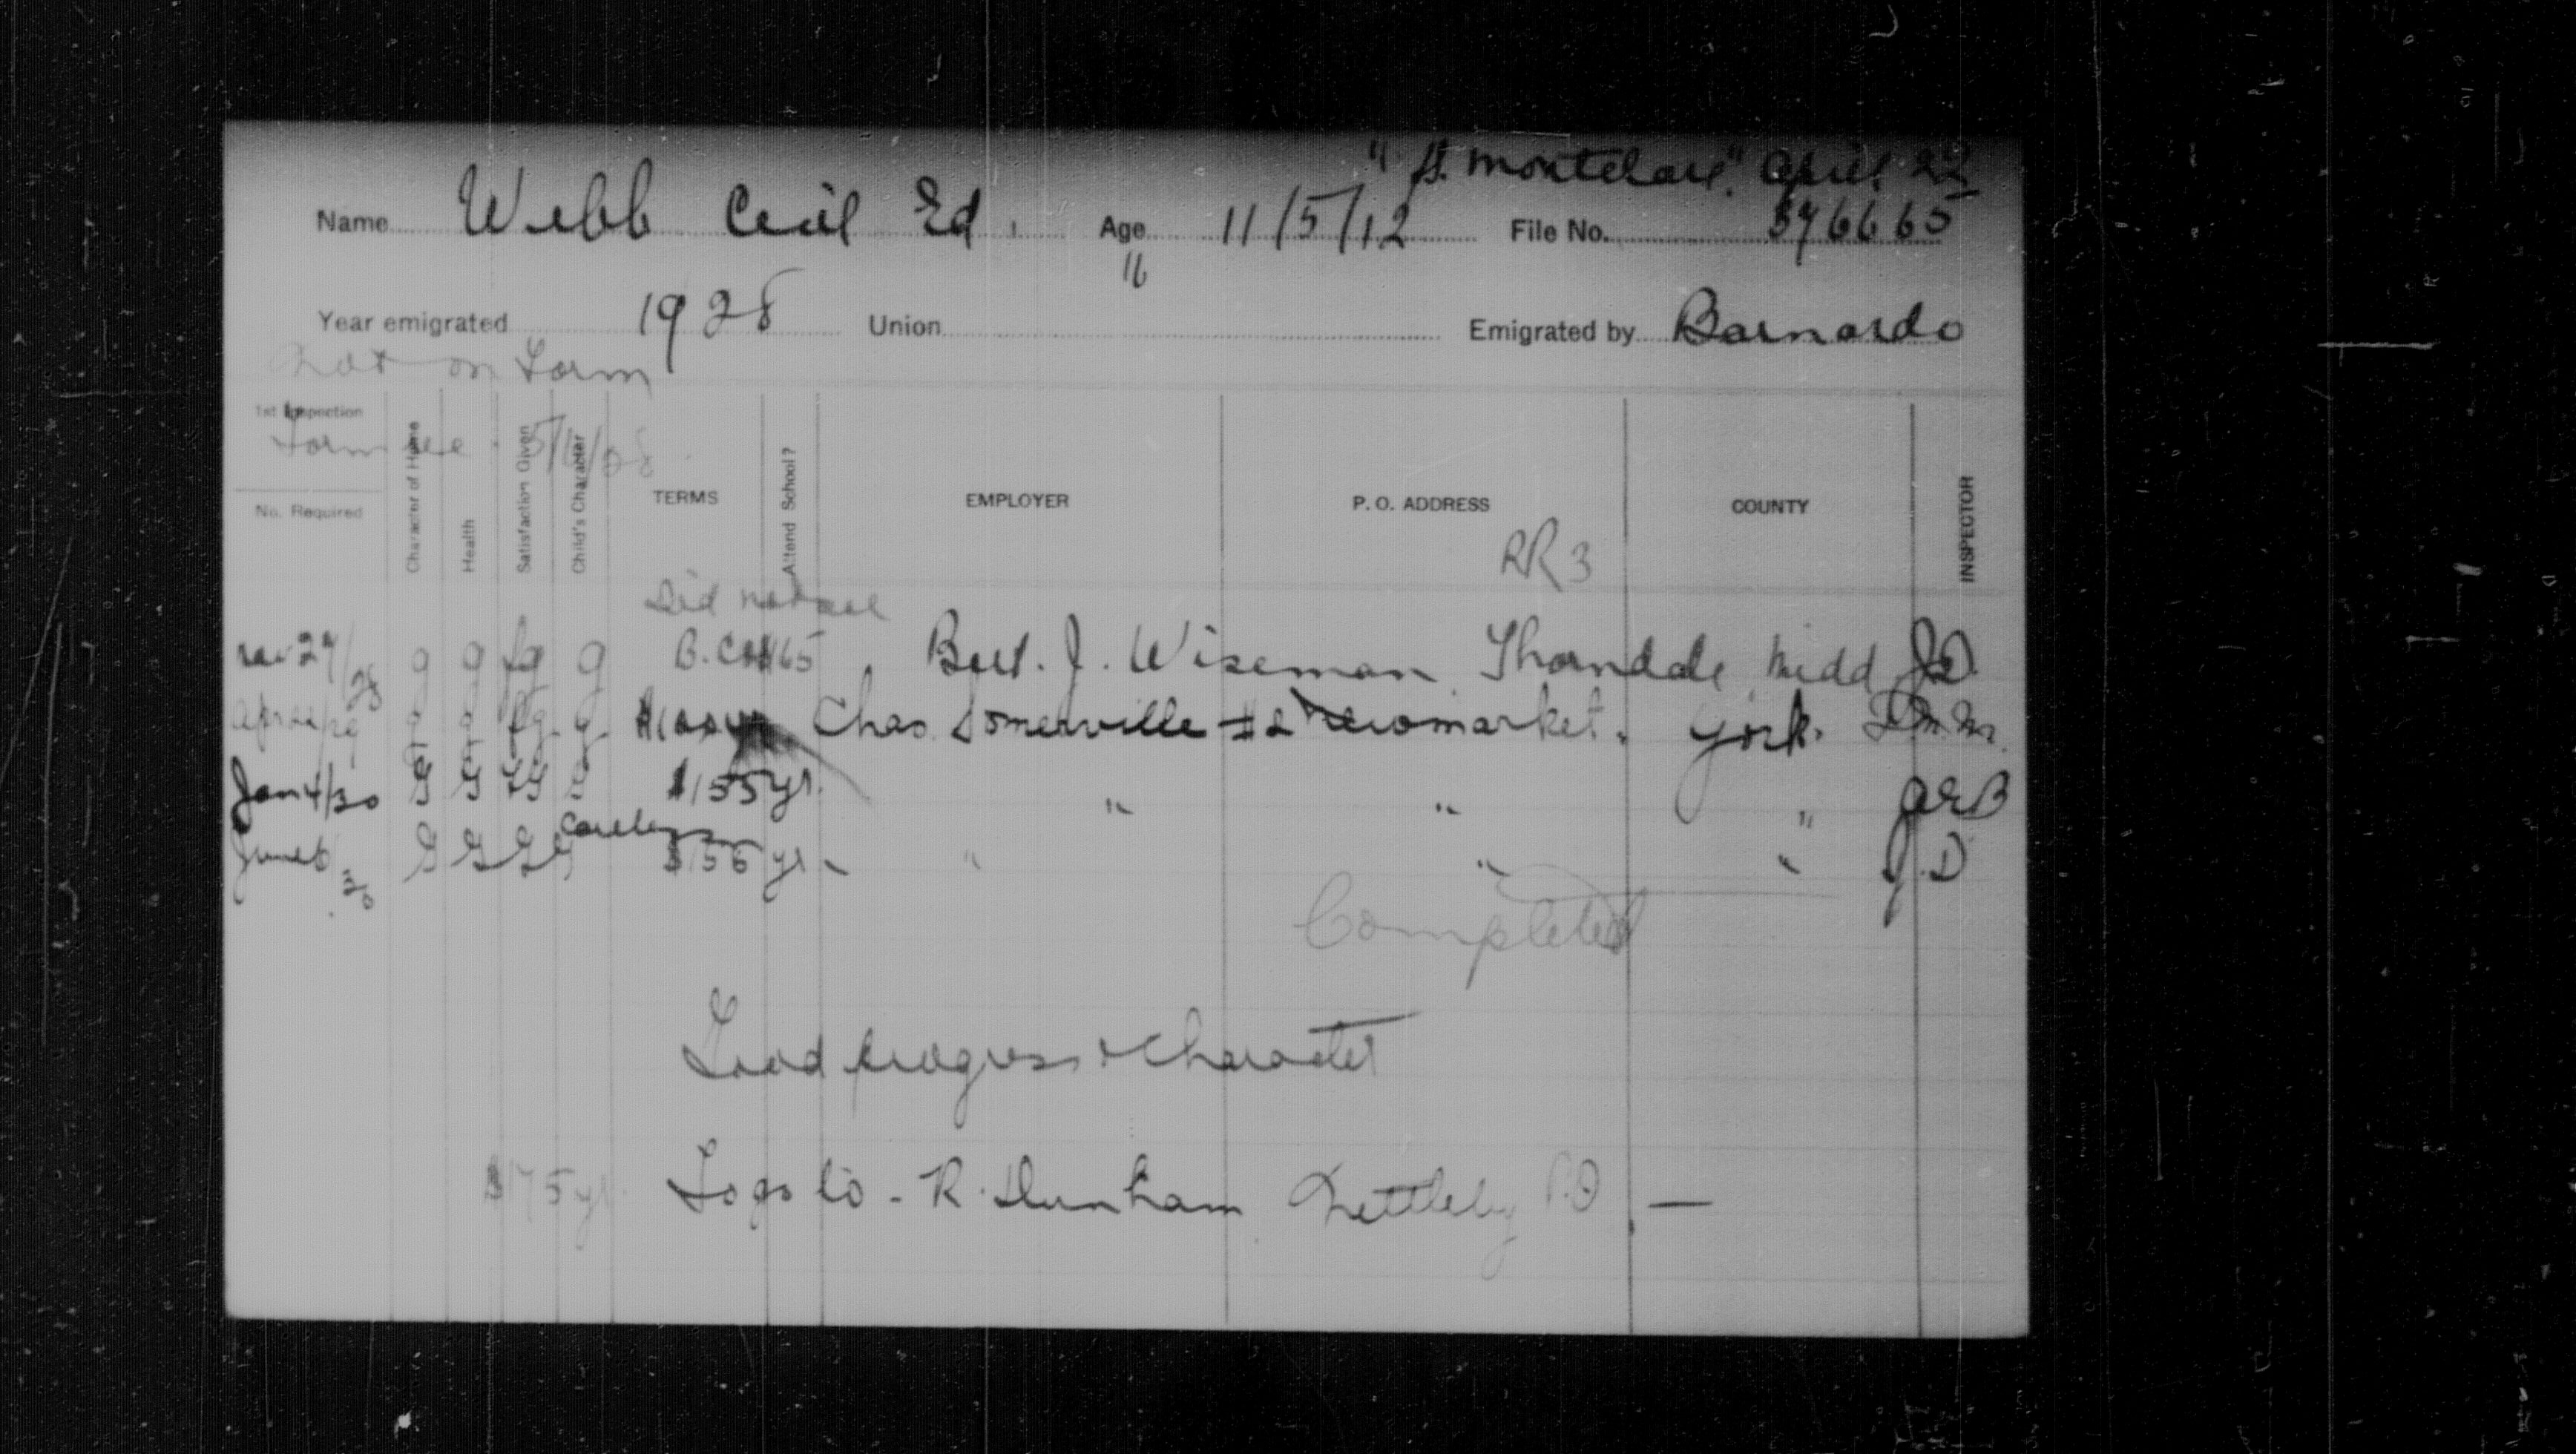 "S.S. Montclare" April 22
Name Webb Cecil Ed. Age 11/5/12 File No. 376665
16
Year emigrated 1928 Union Emigrated by Barnardo
Not on Form
1st Inspection Character of Home Health Satisfaction Given Child's Character TERMS Attend School? EMPLOYER P. O. ADDRESS COUNTY INSPECTOR
Form rec 5/6/28
No. Required
RR 3
Did not see
Nov 29/28 g g fg g B. C. $65 Bert. J. Wiseman Thorndale Midd J.D.
g g fg g yr Chas. Somerville #2 Newmarket. York.
Jan 4/30 G G FG G $155 yr. " " " JEB
Careless
June 6 "30 G G G G yr - " " " J.D
Completed
Good progress & Character
$175 yr. To go to - R. Dunham Kettleby P.O. —